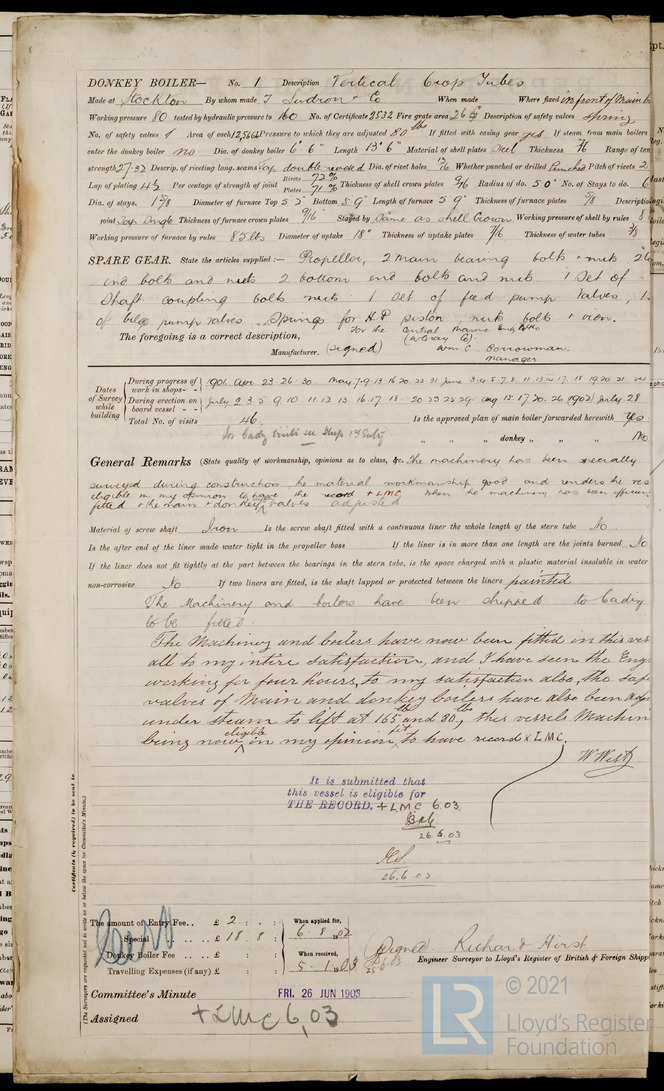 DONKEY BOILER— No. 1 Description Vertical Crop Tubes
Made at Stockton By whom made T Sudron & Co When made Where fixed in front of Main
Working pressure 80 tested by hydraulic pressure to 160 No. of Certificate 2532 Fire grate area 26 Description of safety valves Spring
No. of safety valves Area of each 12.566 Pressure to which they are adjusted 80 lbs If fitted with easing gear yes If steam from main boilers
enter the donkey boiler no Dia. of donkey boiler 6' 6" Length 13' 6" Material of shell plates Steel Thickness 7/16 Range of ten
strength 27-32 Descrip. of riveting long. seams Lap double riveted Dia. of rivet holes 13/16 Whether punched or drilled Punched Pitch of rivets 2
Lap of plating 4½ Per centage of strength of joint Rivets 72% Plates 71% Thickness of shell crown plates 9/16 Radius of do. 5 0" No. of Stays to do. 6
Dia. of stays. 1 5/8 Diameter of furnace Top 5 5" Bottom 5 9" Length of furnace 5 9" Thickness of furnace plates 5/8 Description
joint Lap Angle Thickness of furnace crown plates 9/16 Stayed by Same as shell Crown Working pressure of shell by rules 8
Working pressure of furnace by rules 85 lbs Diameter of uptake 18" Thickness of uptake plates 7/16 Thickness of water tubes 3/8
SPARE GEAR. State the articles supplied:— Propeller, 2 main bearing bolts & nuts 2
end bolts and nuts 2 bottom end bolts and nuts 1 Set of
Shaft coupling bolts nuts 1 set of feed pump valves, 1
of bilge pump valves. Springs for H P piston, nuts bolts & iron.
The foregoing is a correct description, For the Central Marine Eng Wks
Manufacturer. (signed) Wm C. Borrowman.
Manager
Dates of Survey while building
During progress of work in shops - - 1901. Apr. 23. 26. 30. May 7. 9. 13. 16. 20. 22. 31 June 3. 4. 5. 7. 8. 11. 13. 14. 17. 18. 19. 20. 21.
During erection on board vessel - - July 2. 3. 5. 9. 10. 11. 12. 13. 16. 17. 18. 20. 23. 25. 29. Aug 15. 17. 20. 26 (1902) July 28
Total No. of visits 46. Is the approved plan of main boiler forwarded herewith Yes
for Cadiz visits see Ship 1st Entry " " " donkey " " " No
General Remarks (State quality of workmanship, opinions as to class, &c. The machinery has been specially
surveyed during construction, the material workmanship good and renders the
eligible in my opinion to have the record + LMC. when the machinery has been
fitted & the main & donkey valves adjusted
Material of screw shaft Iron Is the screw shaft fitted with a continuous liner the whole length of the stern tube No.
Is the after end of the liner made water tight in the propeller boss If the liner is in more than one length are the joints burned No
If the liner does not fit tightly at the part between the bearings in the stern tube, is the space charged with a plastic material insoluble in water
non-corrosive No If two liners are fitted, is the shaft lapped or protected between the liners painted
The Machinery and boilers have been shipped to Cadiz
to be fitted.
The Machinery and boilers have now been fitted in this ves
all to my entire satisfaction, and I have seen the Eng
working for four hours, to my satisfaction also, the saf
valves of Main and donkey boilers have also been adj
under steam to lift at 165 lbs and 80 lbs, this vessels Machin
being now eligible in my opinion to have record x LMC.
W West
It is submitted that
this vessel is eligible for
THE RECORD. + LMC 6.03
26.6.03
26.6.03
Certificate (if required) to be sent to
(The Surveyors are requested not to write on or below the space for Committee's Minute.)
The amount of Entry Fee .. £ 2 : : When applied for,
Special .. .. £ 18 : 8 : 6. 8. 1902
Donkey Boiler Fee .. .. £ : : When received,
Travelling Expenses (if any) £ : : 5. 1. 1903
(Signed Richard Hirst
Engineer Surveyor to Lloyd's Register of British & Foreign Shipp
Committee's Minute FRI. 26 JUN 1903
Assigned + LMC 6,03
© 2021
LR
Lloyd's Register
Foundation